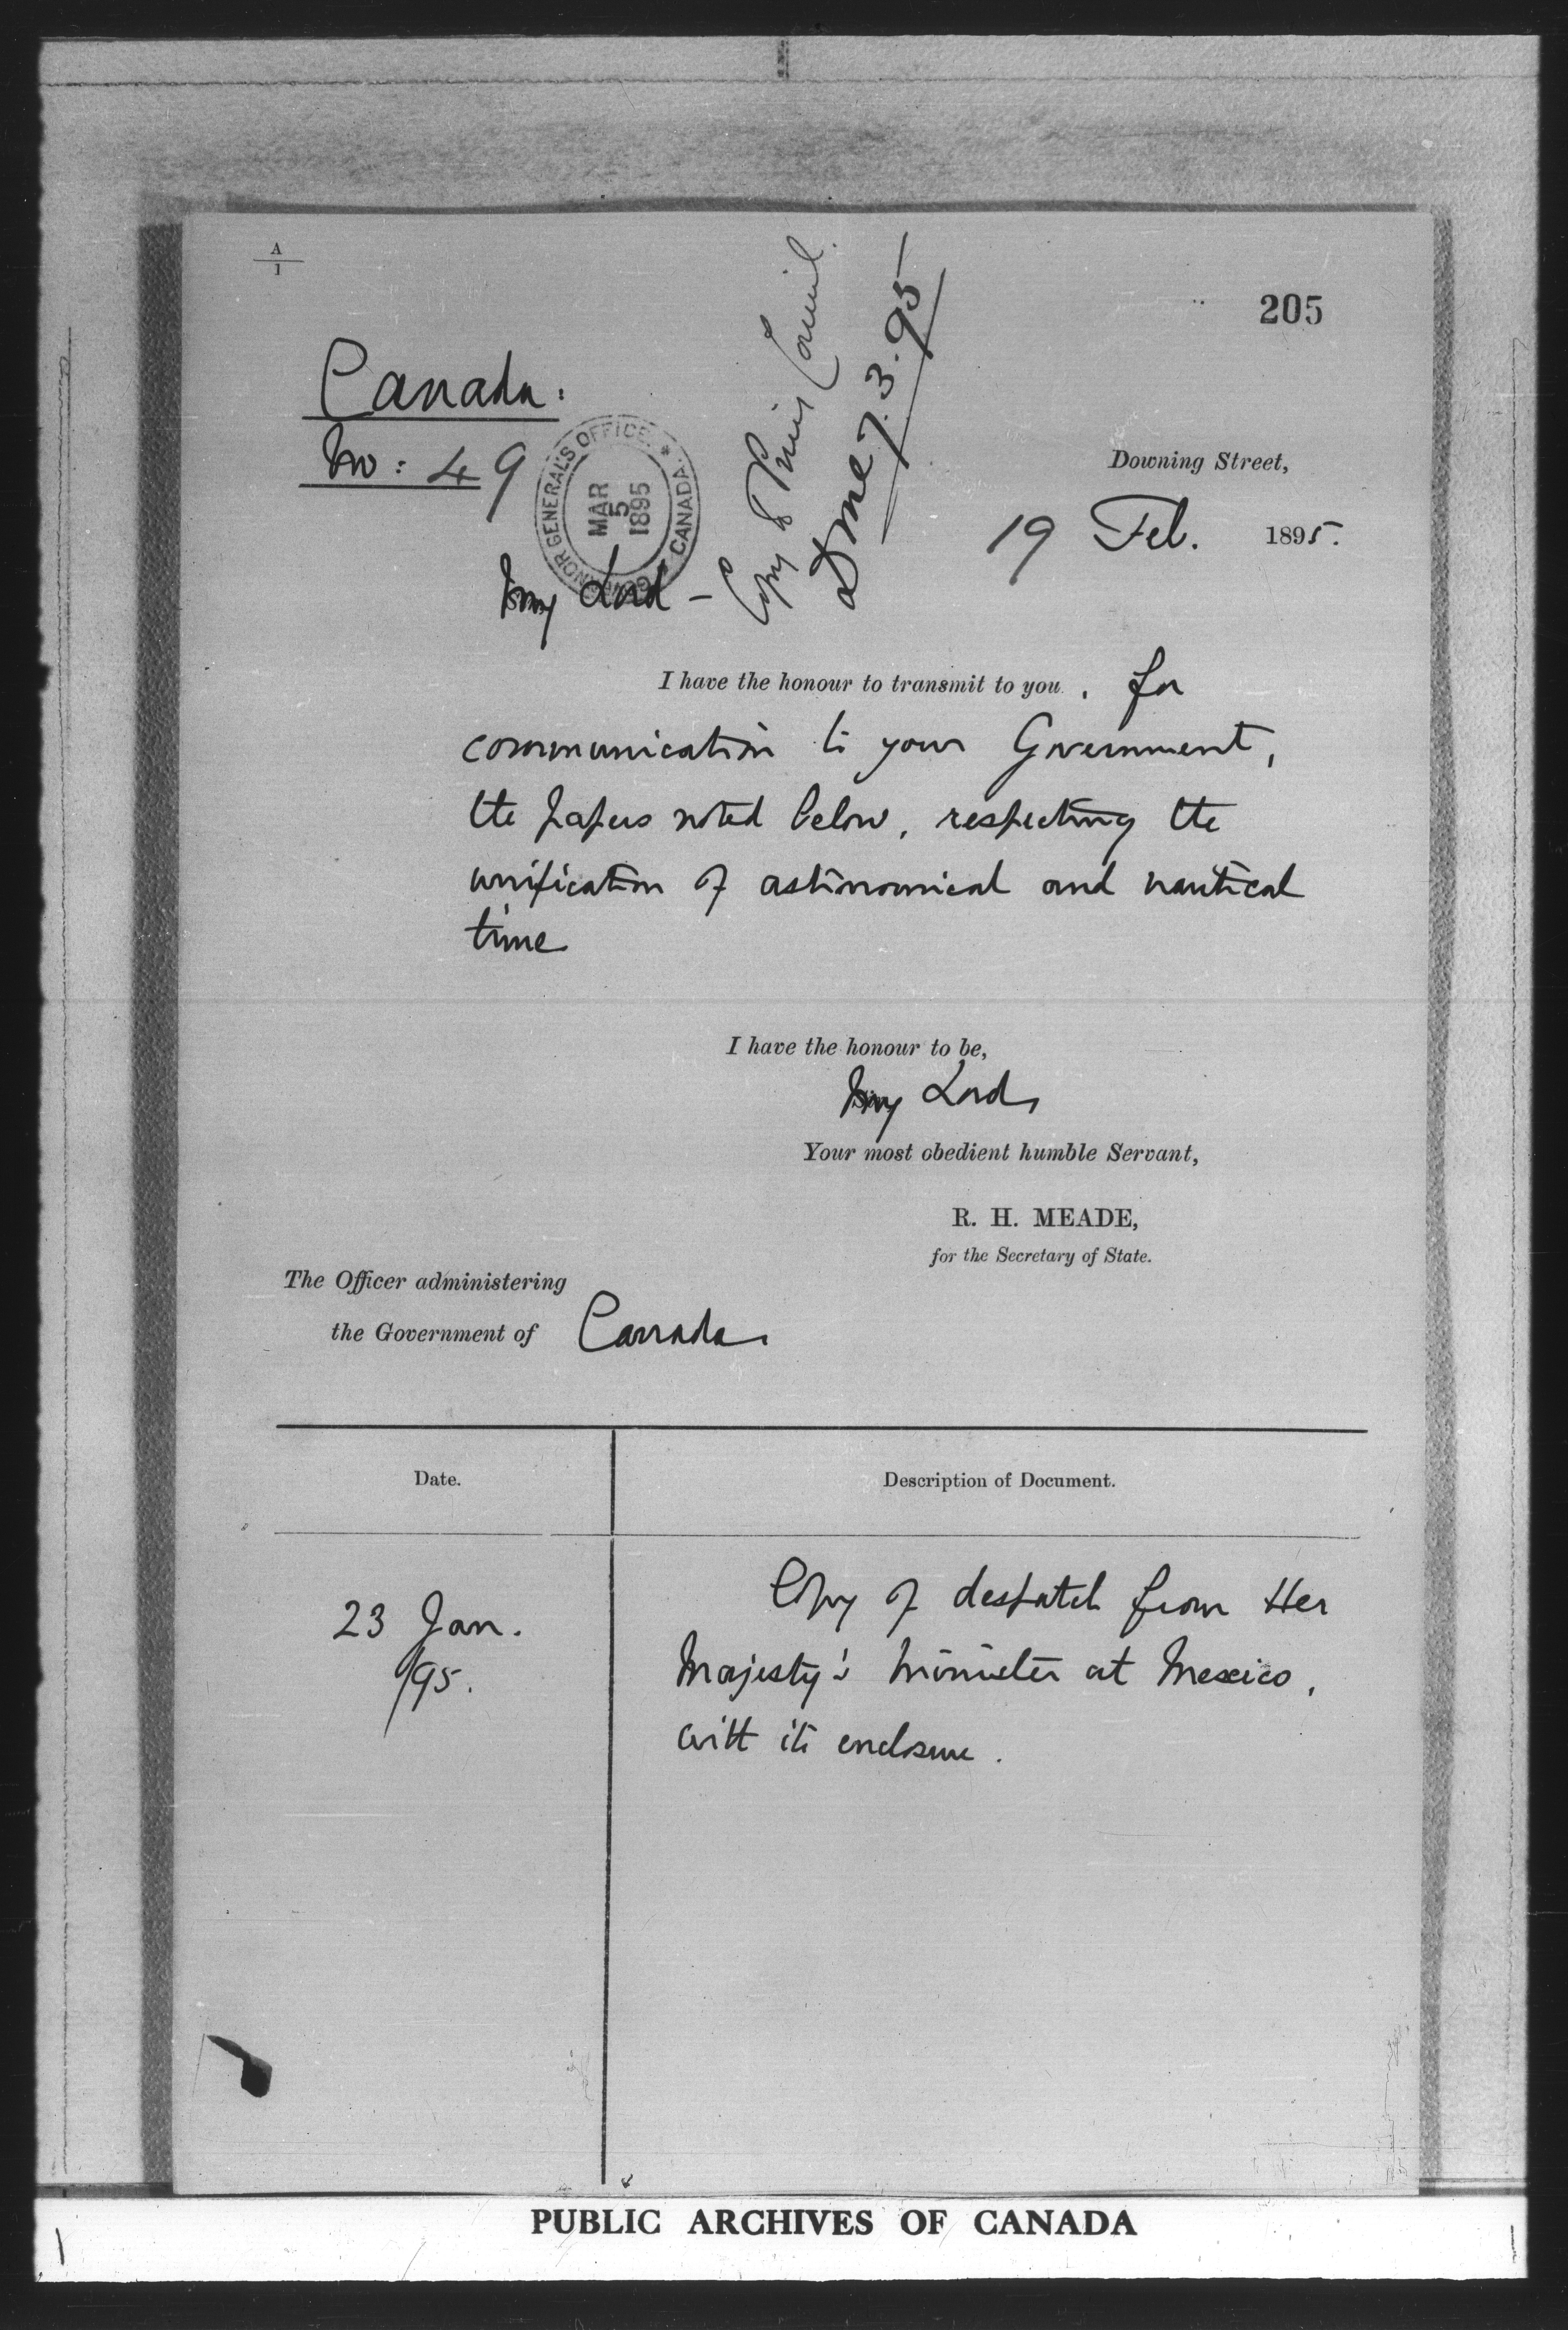 A
1
205
Canada.
No: 49
GOVERNOR GENERAL'S OFFICE * CANADA
MAR
5
1895
Copy to Privy Council
7.3.95
Downing Street,
19 Feb. 1895.
My Lord -
I have the honour to transmit to you, for
communication to your Government,
the papers noted below, respecting the
unification of astronomical and nautical
time
I have the honour to be,
My Lord,
Your most obedient humble Servant,
R. H. MEADE,
for the Secretary of State.
The Officer administering
the Government of Canada.
Date.
Description of Document.
23 Jan.
/95.
Copy of despatch from Her
Majesty's Minister at Mexico,
with its enclosure.
PUBLIC ARCHIVES OF CANADA